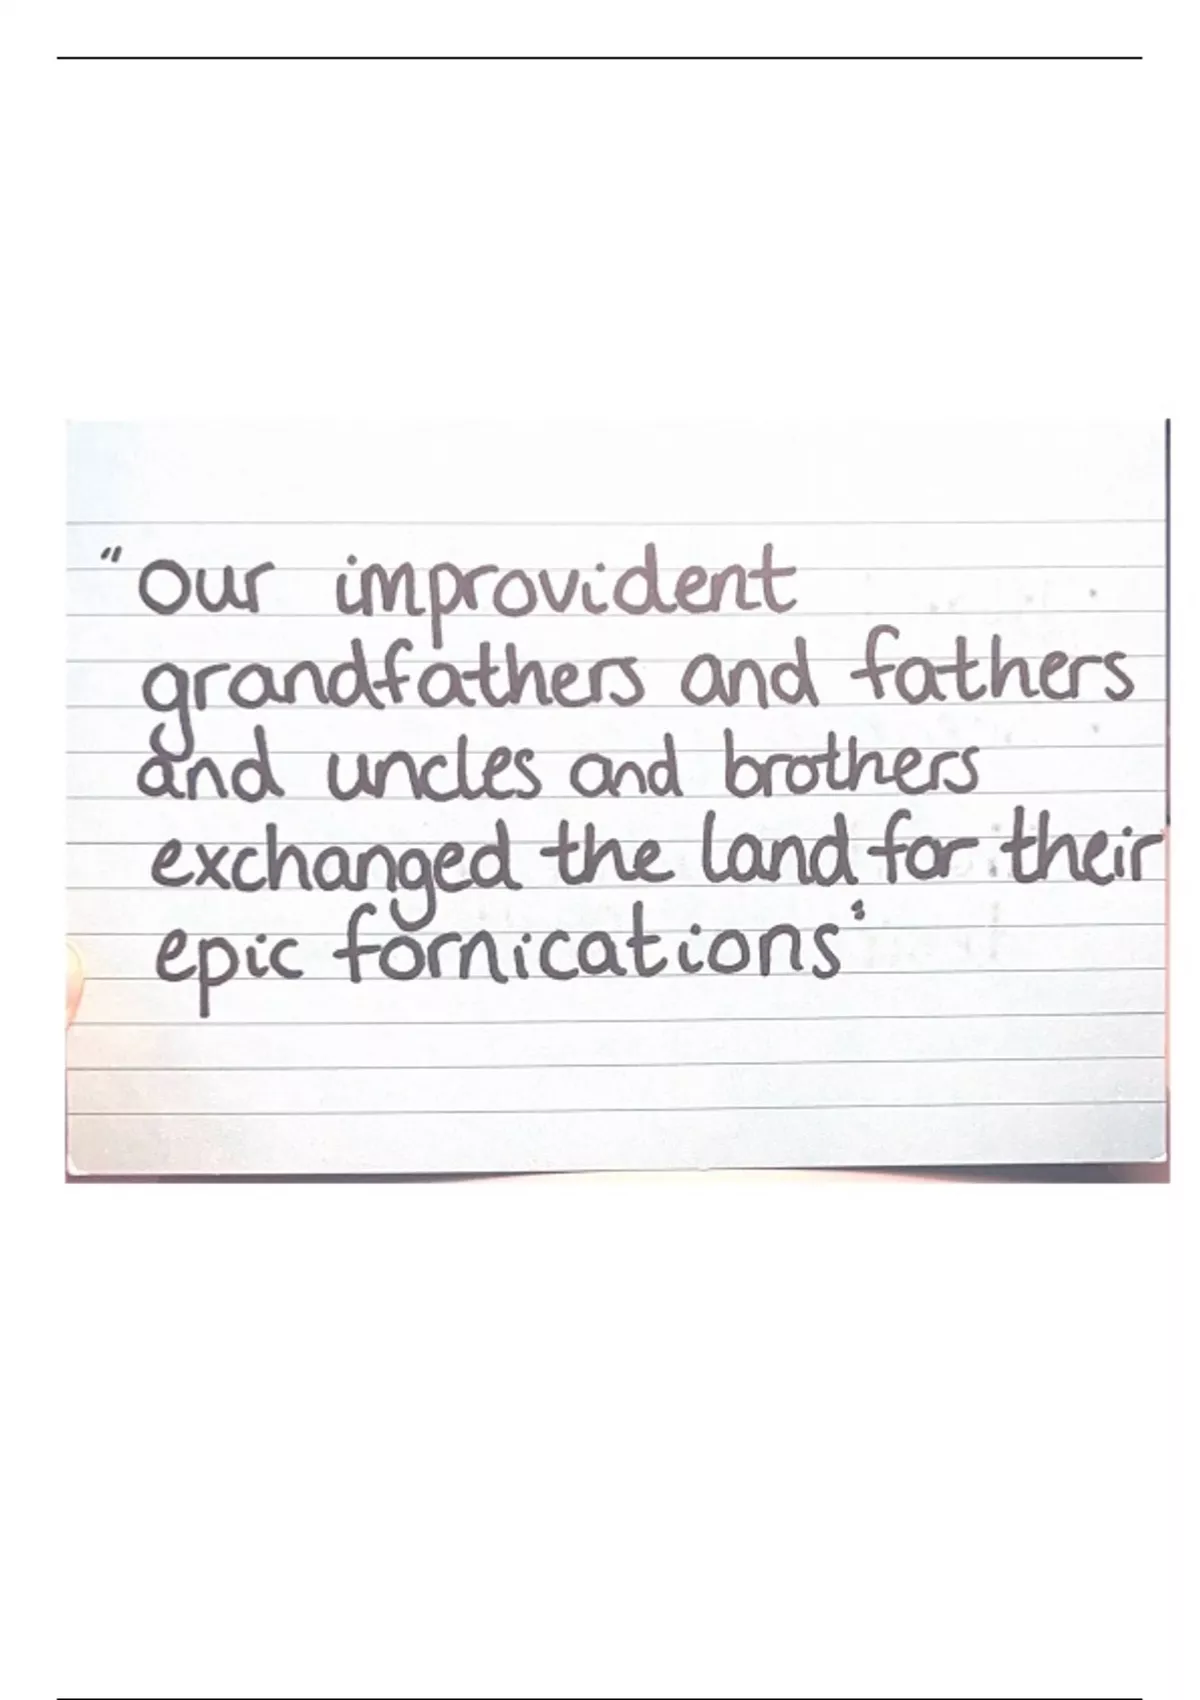 "Our improvident
grandfathers and fathers
and uncles and brothers
exchanged the land for their
epic fornications"